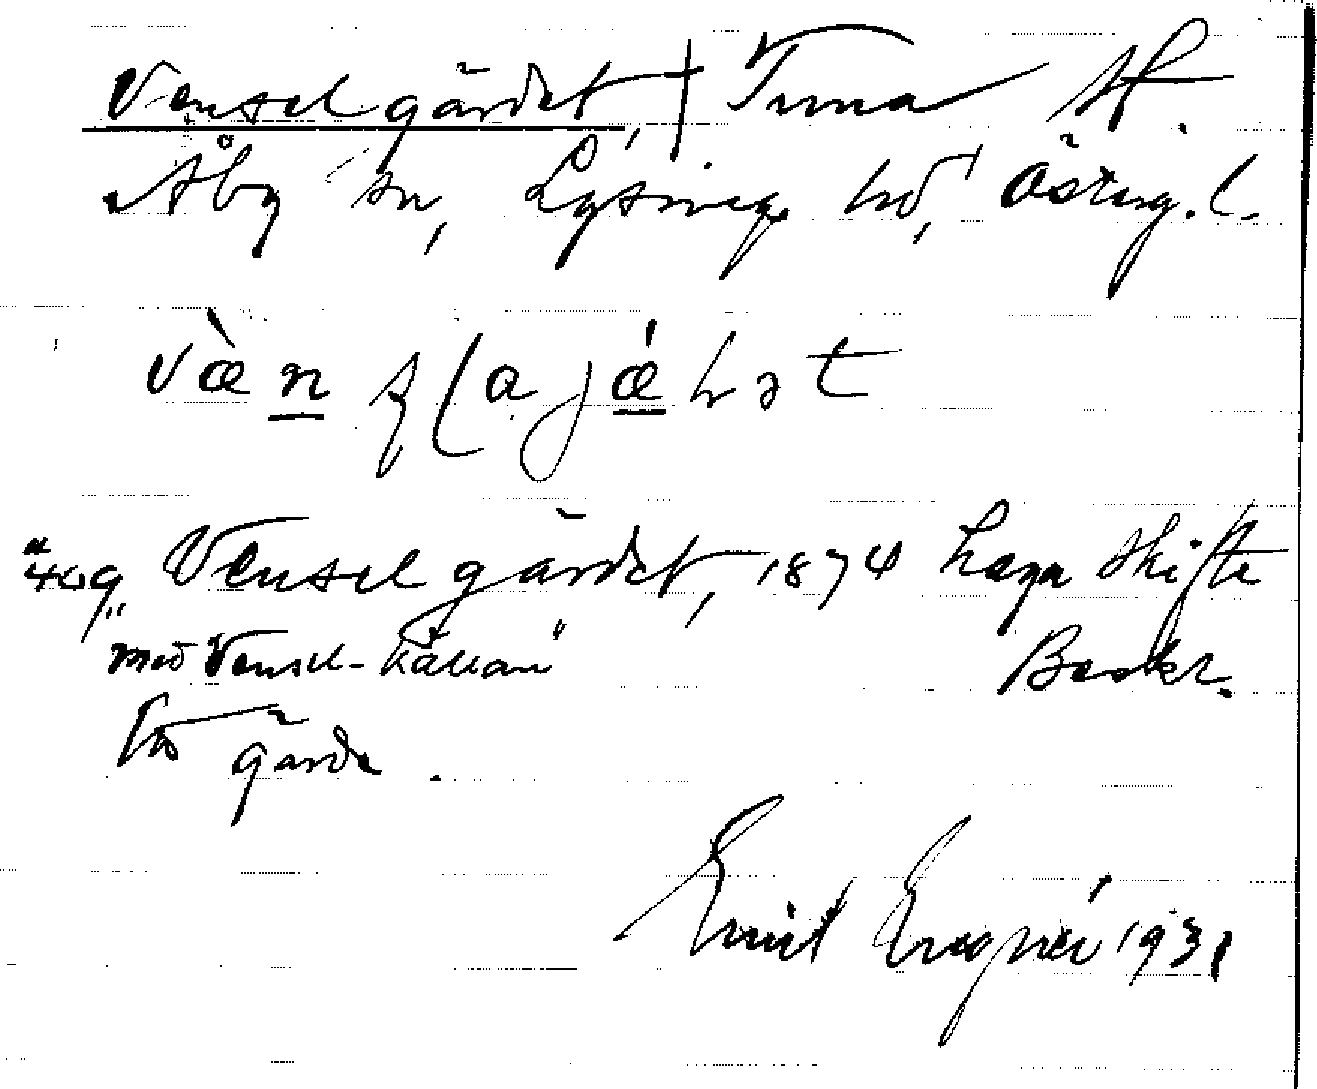 Venselgärdet, † Tuna H.
Åby sn, Lysings hd, Östergl.
væ̀nsla jǽḷət
äng Venselgärdet, 1874 Laga skifte
"med Vensel-källan" Beskr.
gärde.
Emil Engnér 1931